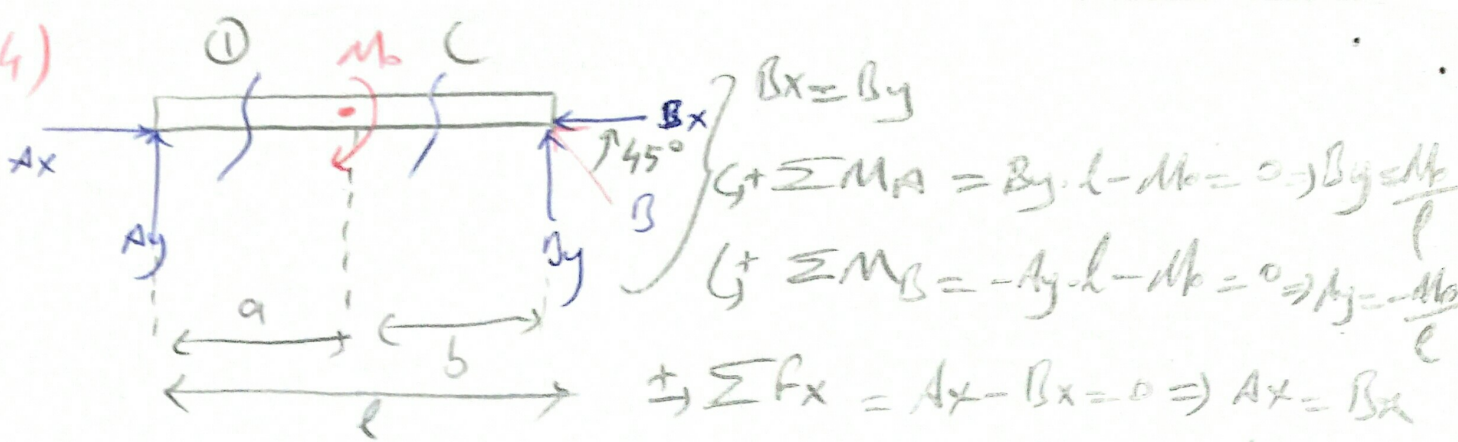 4)
① M₀ C
Ax Bx
45°
B
Ay By
a b
l
Bx = By
↺+ ΣM_A = By·l - M₀ = 0 ⇒ By = M₀/l
↺+ ΣM_B = -Ay·l - M₀ = 0 ⇒ Ay = -M₀/l
+→ ΣFx = Ax - Bx = 0 ⇒ Ax = Bx